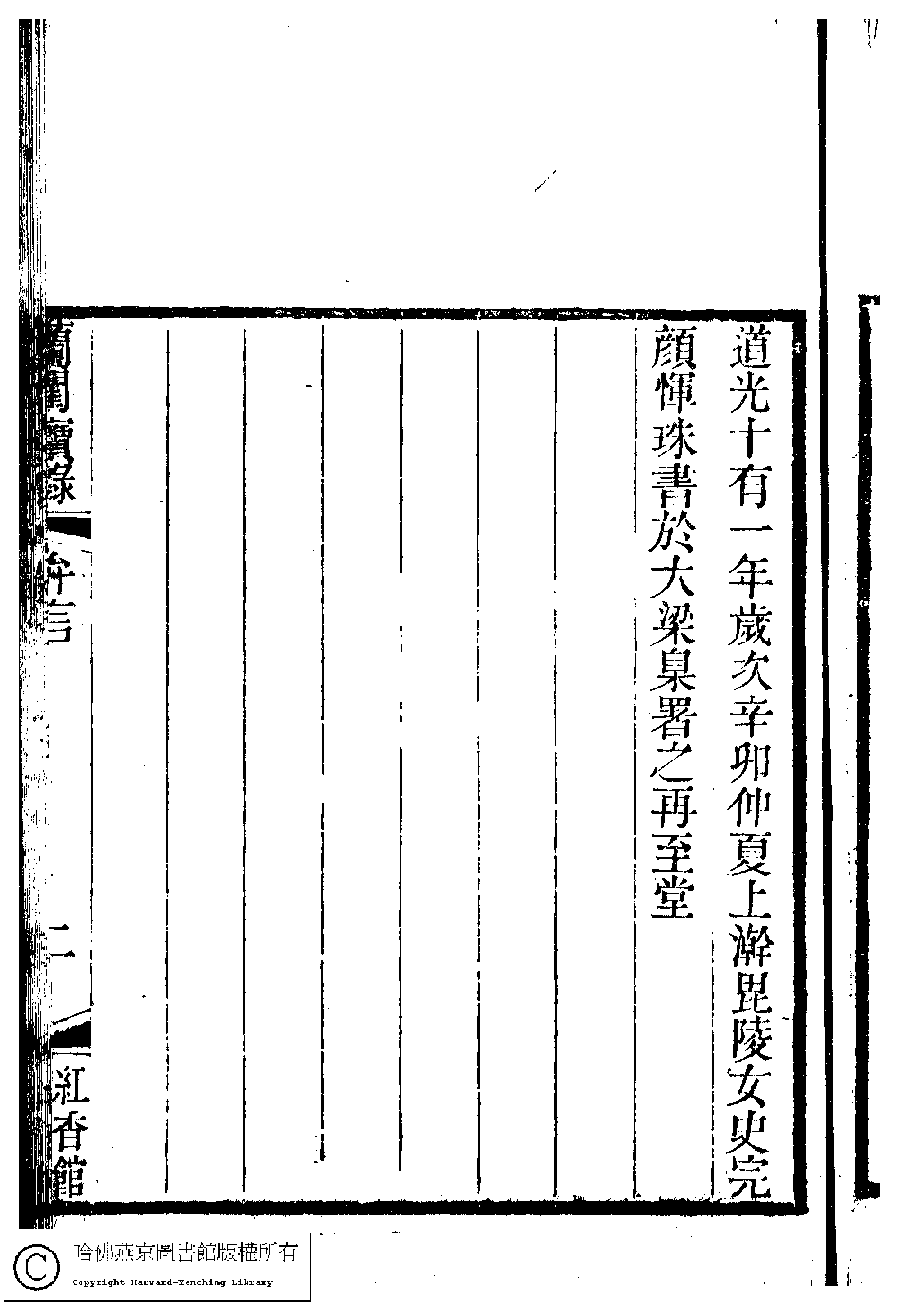 道光十有一年歲次辛卯仲夏上澣毘陵女史完
顏惲珠書於大梁臬署之再至堂
蘭閨寶錄
弁言
二
紅香館
哈佛燕京圖書館版權所有
Copyright Harvard-Yenching Library